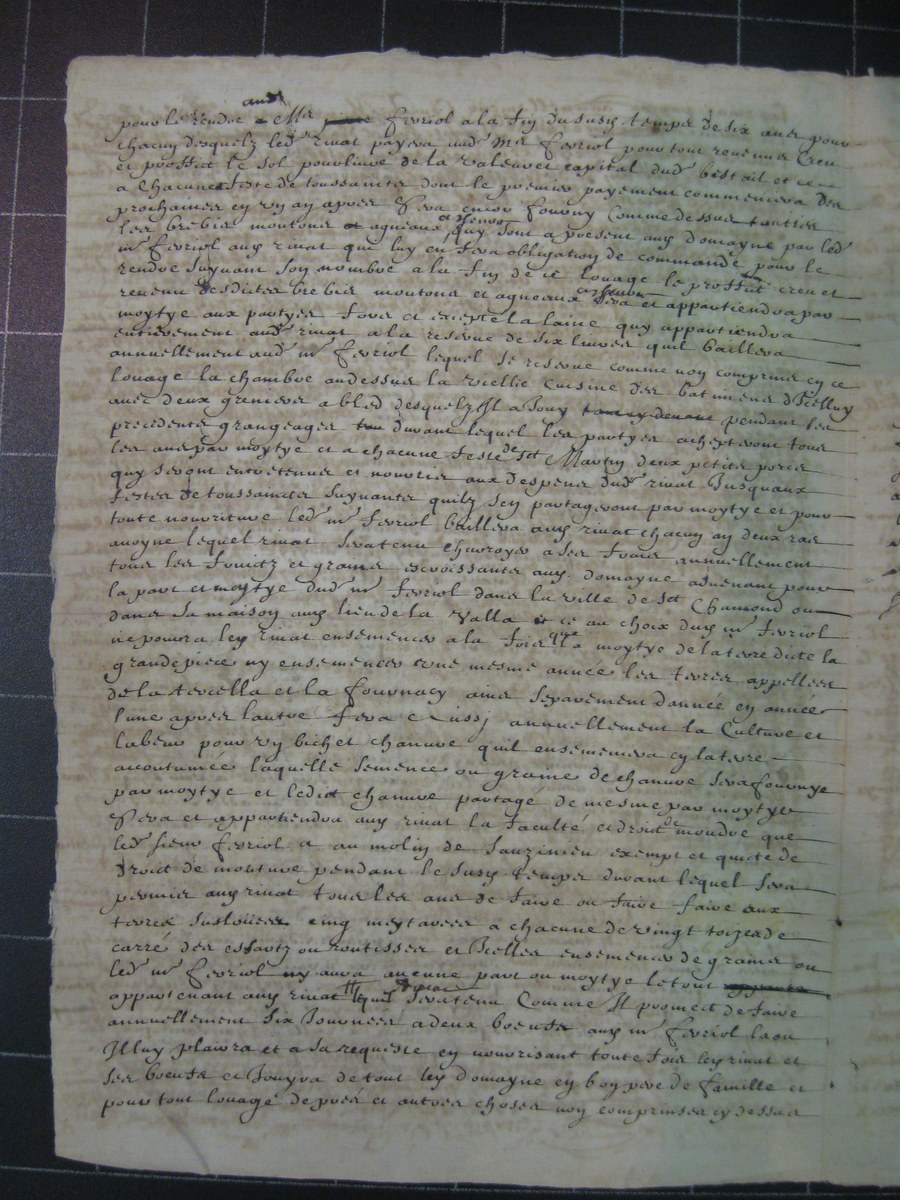 aud
pour le rendre a Mr Fevriol a la fin dusus. temps de six ans pour
chacun desquelz led. rivat payera aud. Mr fevriol pour tout revenu creu
et proffict le sol pour livre de la valeur et capital dud. bestail et ce
a chacune feste de toussaincts dont le premier payement commencera des
prochaines en un an apres Sera encor fourny comme dessus touttes
les brebis moutons et agneaux a chevro quy sont a present aus. domayne par led.
mr fevriol aus. rivat qui luy en fera obligation de commande pour le
rendre suyvant son nombre a la fin de ce louage le proffict creu et
revenu desdictes brebis moutons et agneaux a chevro sera et appartiendra par
moytye aux partyes fors et excepte la laine quy appartiendra
entierement aud. rivat a la reserve de six livres quil baillera
annuellement aud. mr fevriol lequel se reserve comme non comprins en ce
louage la chambre audessus la vieille cuisine des batimens d'Icelluy
avec deux greniers a bled desquelz Il a Jouy pendant les
precedents grangeages durant lequel les partyes achepteront tous
les ans par moytye et a chacune feste de sct Martin deux petits porcs
quy seront entretenus et nourris aux despens dud. rivat Jusquaux
festes de toussaincts suyvants quilz sen partageront par moytye et pour
toute nourriture led. mr fevriol baillera aus. rivat chacun an deux ras
avoyne lequel rivat sera tenu charroyer a ses frais annuellement
tous les fruictz et grains escroissants aus. domayne advenant pour
la part et moytye dud. mr fevriol dans la ville de sct Chamond ou
dans sa maison aus. lieu de la Valla et ce au choix dus. mr fevriol
ne pourra ley rivat ensemencer a la fois que la moytye de la terre dicte la
grande piece ny ensemencer une mesme année les terres appellees
de la terciella et la fournacy ains separement d'année en année
l'une apres lautre fera aussy annuellement la culture et
labeur pour un bichet chanvre quil ensemencera en la terre
accoutumee laquelle semence ou graine de chanvre sera fournye
par moytye et ledict chanvre partagé de mesme par moytye
Sera et appartiendra aus. rivat la faculté et droict de moudre que
led. sieur fevriol a au molin de Sauzinieu exempt et quicte de
droict de mouture pendant le susd. temps durant lequel sera
permis aus. rivat tous les ans de faire ou faire faire aux
terres suslouées cinq meytarees a chacune de vingt toizes de
carré des essartz ou routisses et Icelles ensemencer de grains ou
led. mr fevriol ny aura aucune part ou moytye le tout
appartenant aus. rivat lequel sera tenu comme Il promect de faire
annuellement six Journees a deux boeufs aus. mr fevriol la ou
Il luy plaira et a sa requeste en nourrisant toute fois ley rivat et
ses boeufs et Jouyra de tout ley domayne en bon pere de famille et
pour tout louage de pres et autres choses non comprinses cy dessus